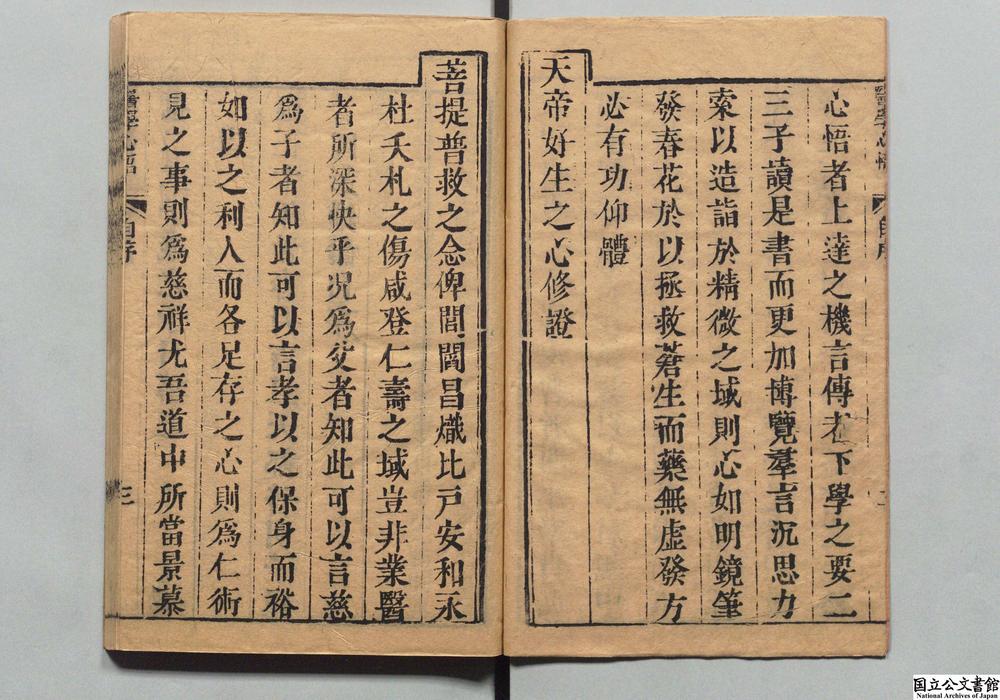 心悟者上達之機言傳者下學之要二
三子讀是書而更加博覽羣言沉思力
索以造詣於精微之域則心如明鏡筆
發春花於以拯救蒼生而藥無虛發方
必有功仰體
天帝好生之心修證
菩提普救之念俾閭閻昌熾比戶安和永
杜夭札之傷咸登仁壽之域豈非業醫
者所深快乎况爲父者知此可以言慈
爲子者知此可以言孝以之保身而裕
如以之利人而各足存之心則爲仁術
見之事則爲慈祥尤吾道中所當景慕
醫學心悟
自序
三
国立公文書館
National Archives of Japan